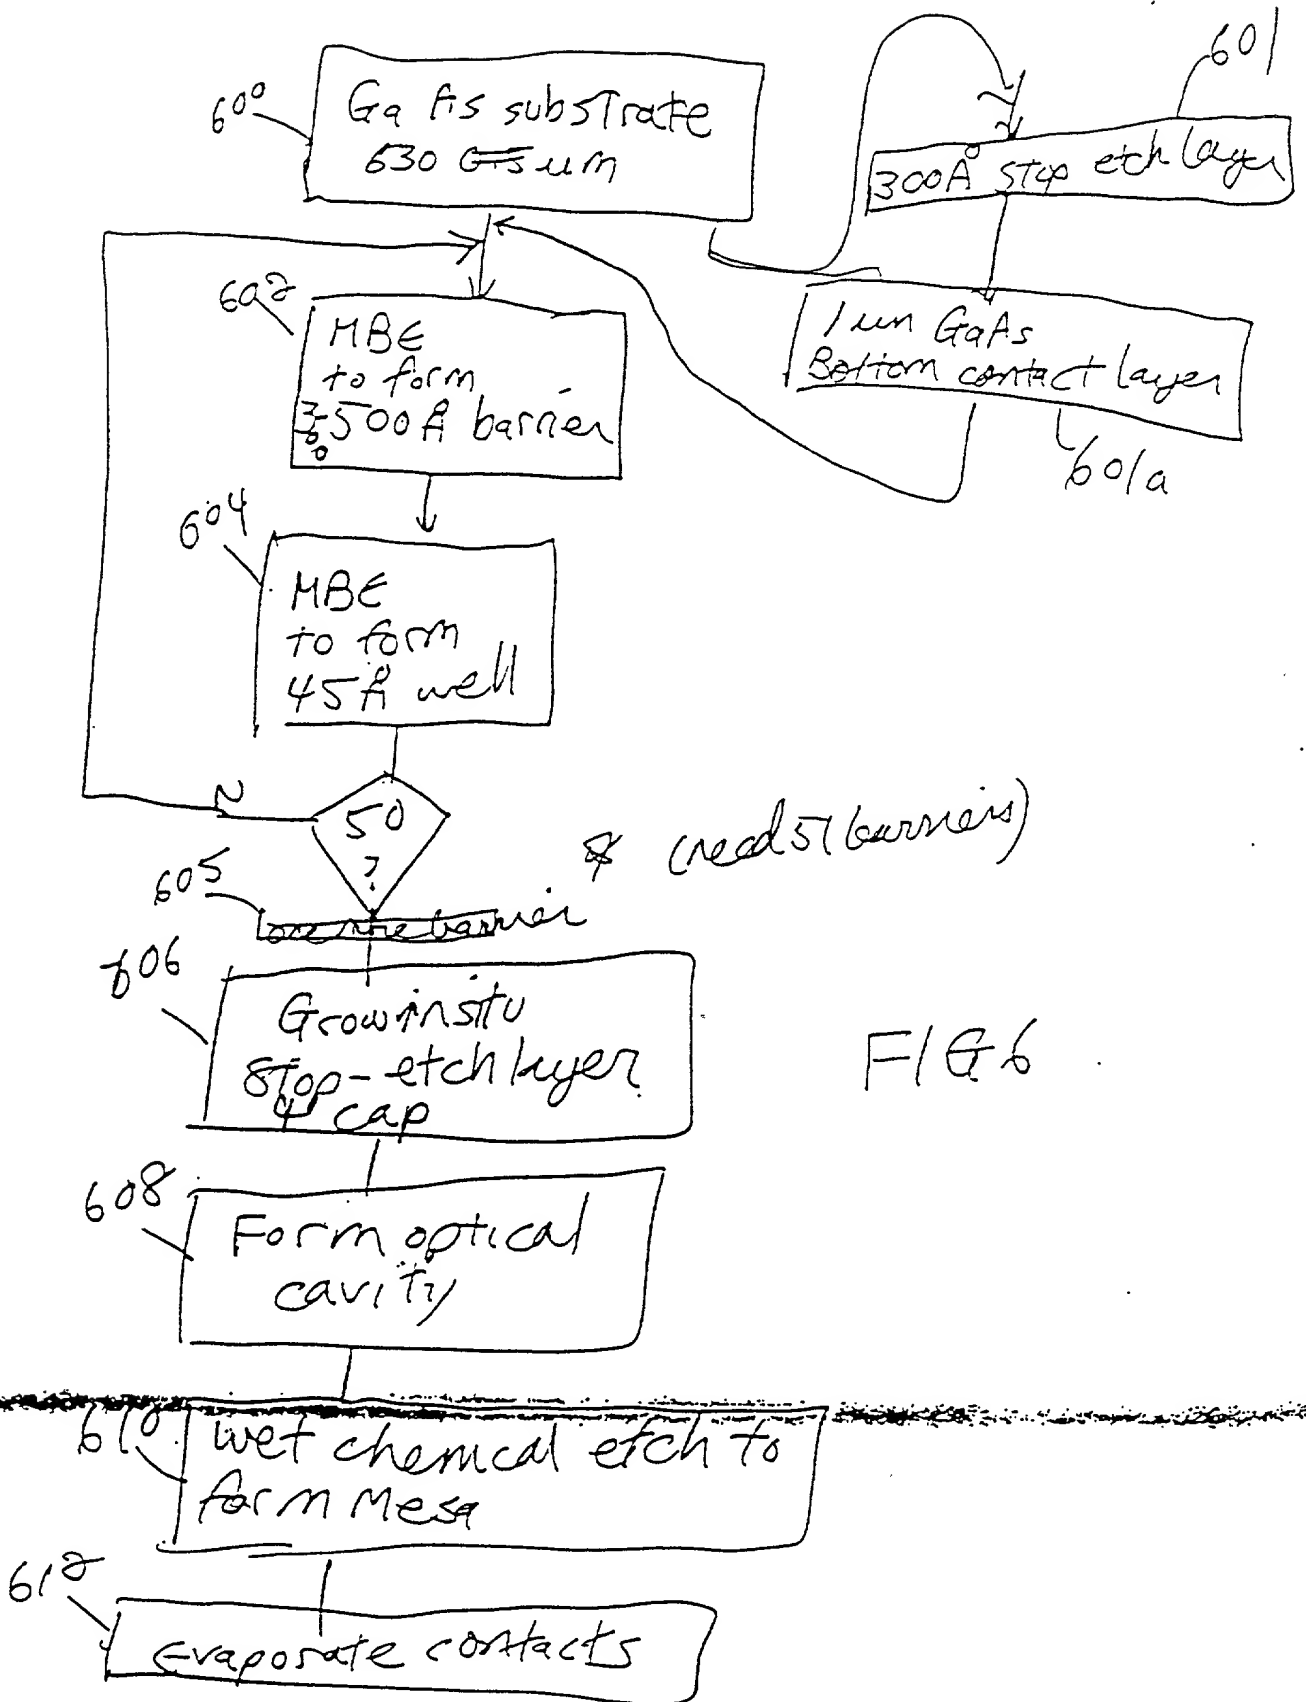 600
Ga As substrate
630 um
601
300Å stop etch layer
1 um GaAs
Bottom contact layer
601a
602
MBE
to form
500Å barrier
604
MBE
to form
45Å well
N
50
?
* (need 51 barriers)
605
one more barrier
606
Grow insitu
Stop-etch layer
& cap
FIG 6
608
Form optical
cavity
610
wet chemical etch to
form Mesa
612
Evaporate contacts